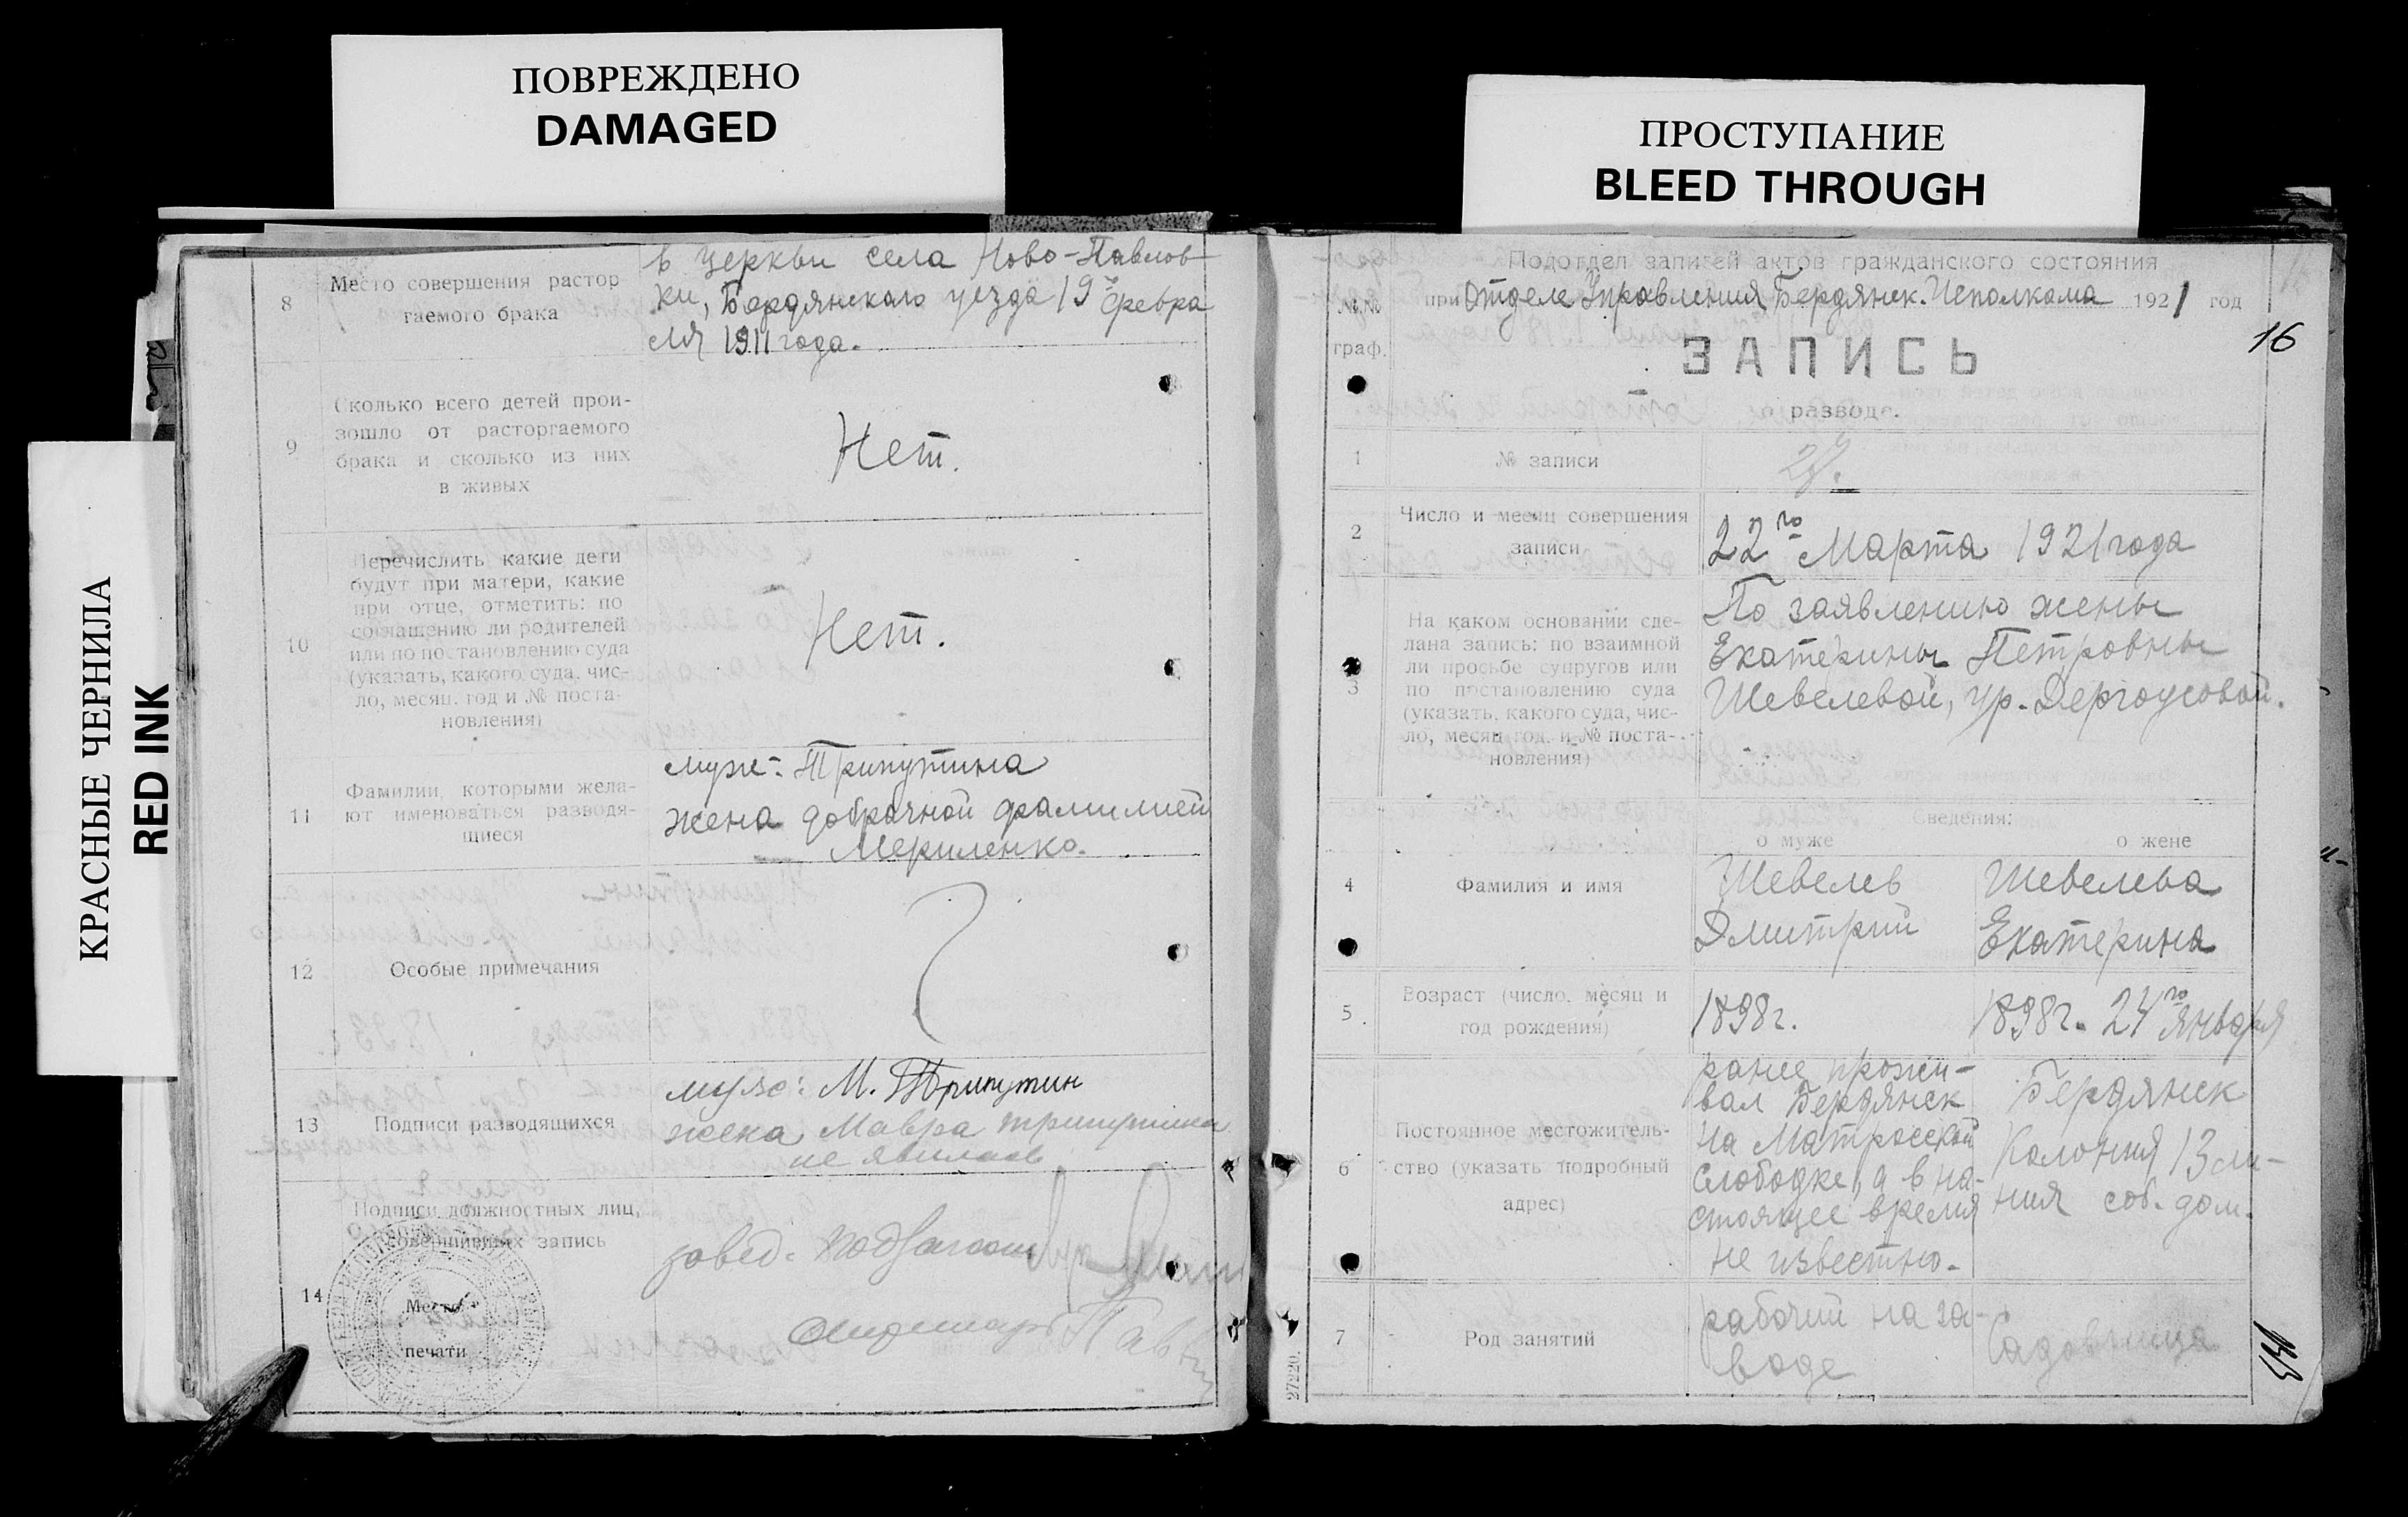 ПОВРЕЖДЕНО
DAMAGED
ПРОСТУПАНИЕ
BLEED THROUGH
КРАСНЫЕ ЧЕРНИЛА
RED INK
8
Место совершения растор
гаемого брака
в церкви села Ново-Павлов
ки, Бердянского уезда 19го февра
ля 1911 года.
9
Сколько всего детей прои-
зошло от расторгаемого
брака и сколько из них
в живых
Нет.
10
Перечислить какие дети
будут при матери, какие
при отце, отметить: по
соглашению ли родителей
или по постановлению суда
(указать, какого суда, чис-
ло, месяц, год и № поста-
новления)
Нет.
11
Фамилии, которыми жела-
ют именоваться разводя-
щиеся
муж - Трипутина
жена добрачной фамилией
Мериленко.
12
Особые примечания
13
Подписи разводящихся
муж: М. Трипутин
жена Мавра Трипутина
не явилась
14
Подписи должностных лиц,
совершивших запись
Место
печати
завед.
Подотдел записей актов гражданского состояния
при Отделе Управления Бердянск. Исполкома 1921 год
№№
граф.
16
ЗАПИСЬ
о разводе.
1
№ записи
2
Число и месяц совершения
записи
22го Марта 1921 года
3
На каком основании сде-
лана запись: по взаимной
ли просьбе супругов или
по постановлению суда
(указать, какого суда, чис-
ло, месяц год. и № поста-
новления)
По заявлению жены
Екатерины Петровны
Шевелевой, ур. Дергоусовой.
Сведения:
о муже
о жене
4
Фамилия и имя
Шевелев
Дмитрий
Шевелева
Екатерина
5
Возраст (число, месяц и
год рождения)
1898г.
1898г. 24го Января
6
Постоянное местожитель-
ство (указать подробный
адрес)
ранее прожи-
вал Бердянск
на Матросской
слободке, а в на-
стоящее время
не известно.
Бердянск
Колония 13 ли-
ния соб. дом.
7
Род занятий
рабочий на за-
воде
Садовница
27220.